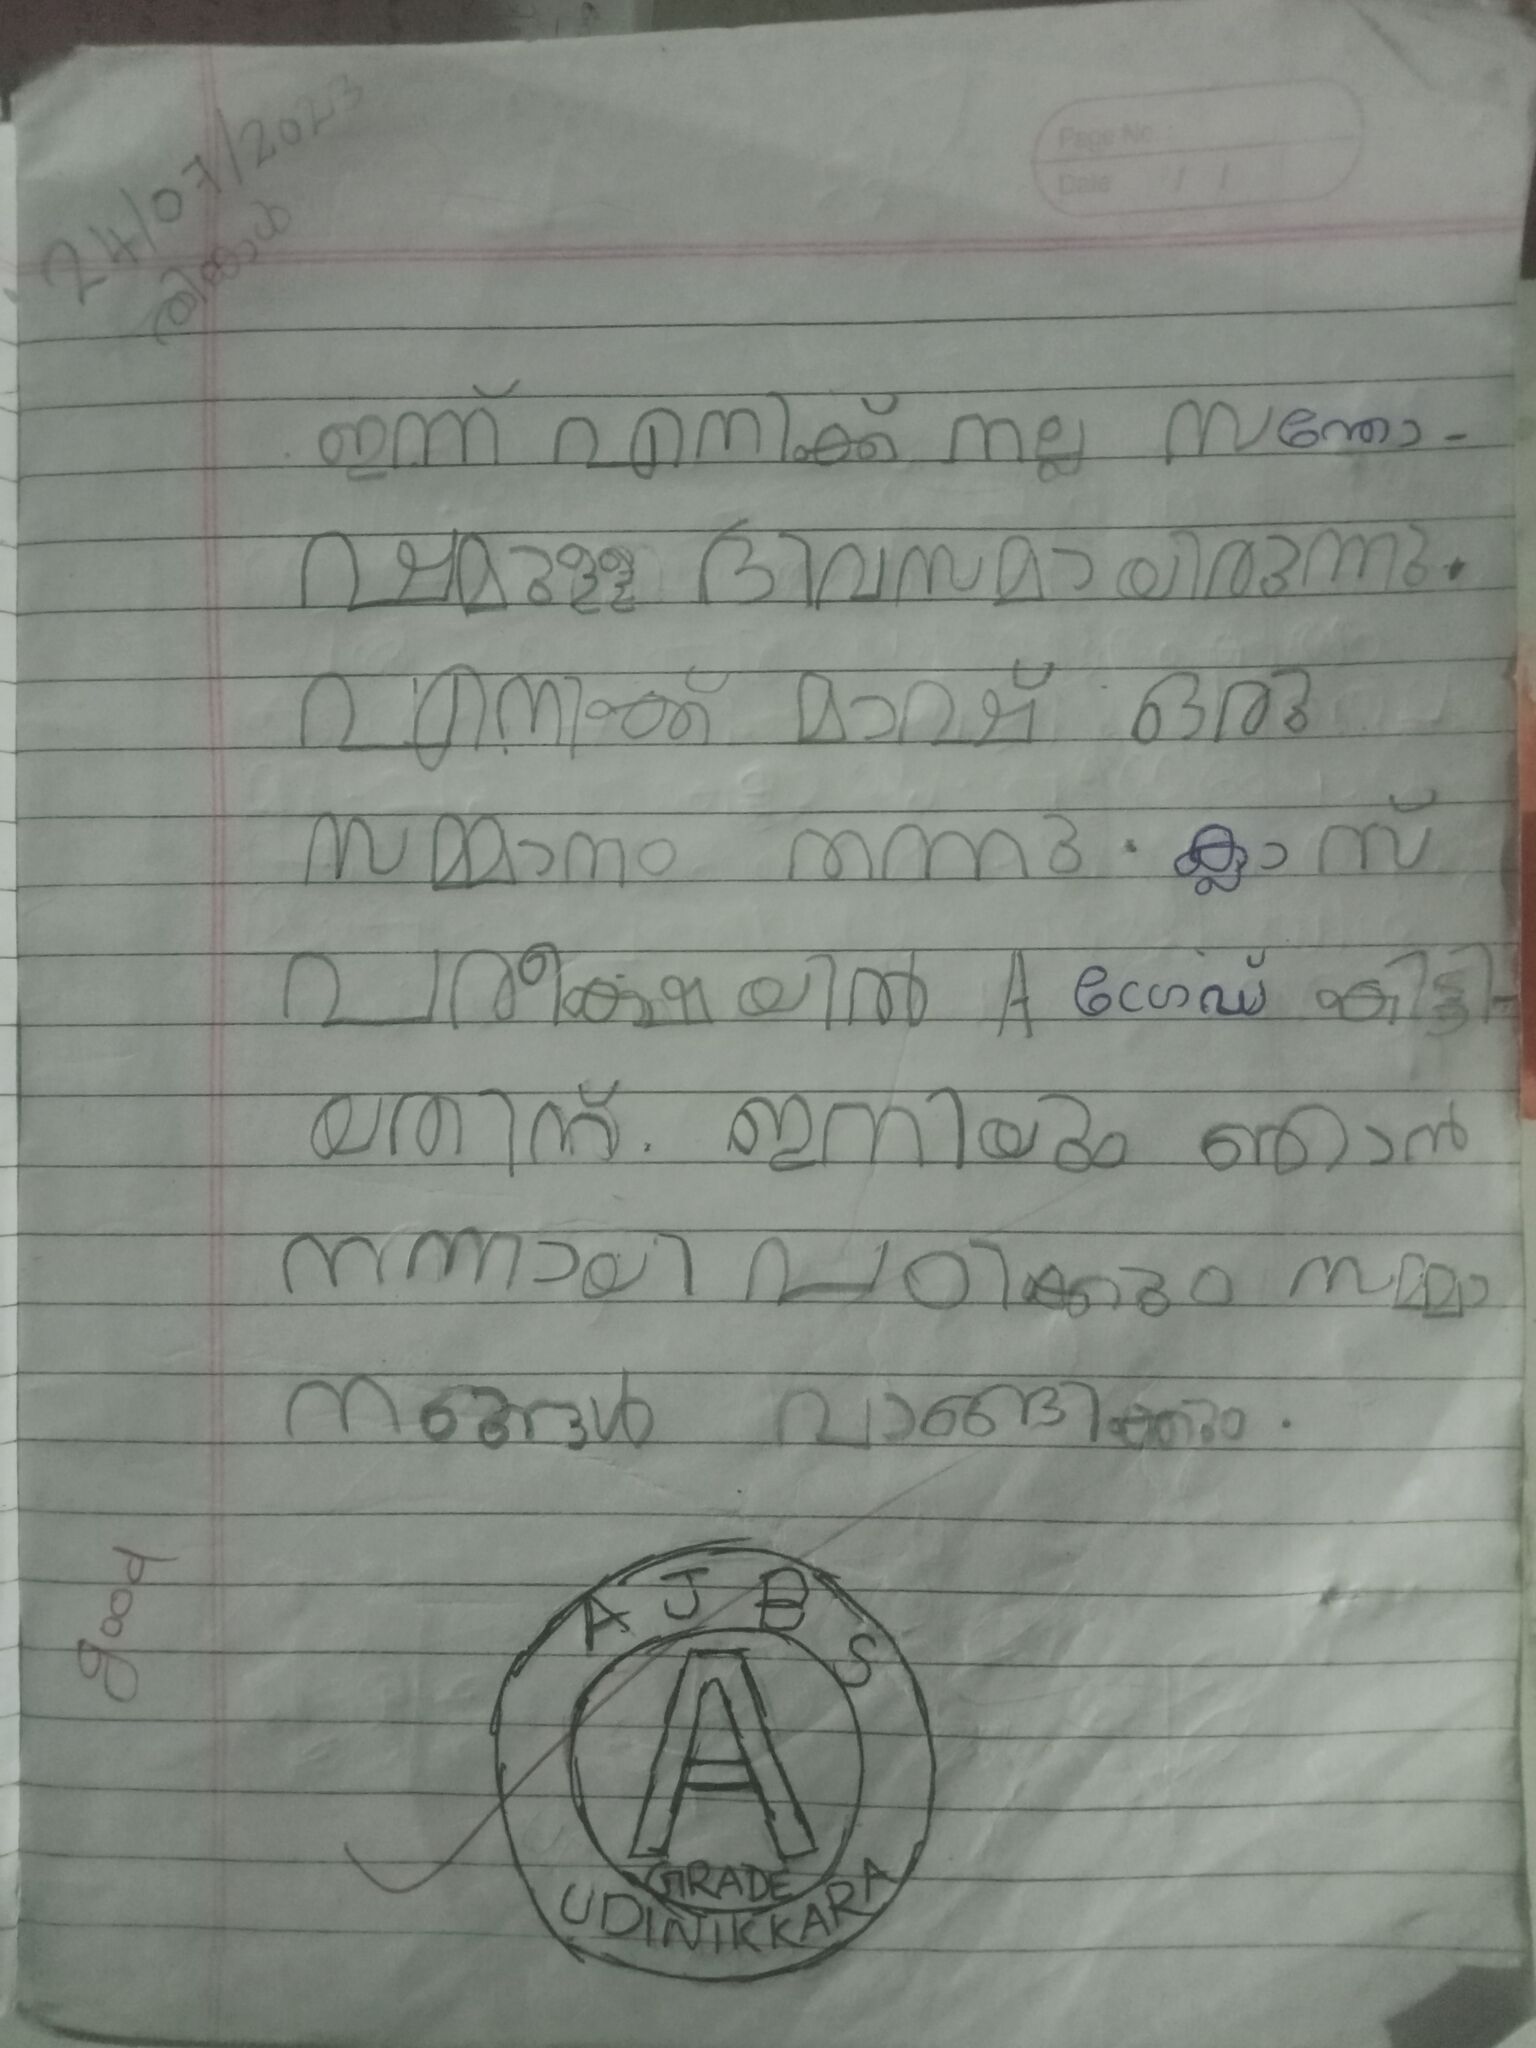 24/07/2023
തിങ്കൾ
Page No.:
Date / /
ഇന്ന് എനിക്ക് നല്ല സന്തോ-
ഷമുള്ള ദിവസമായിരുന്നു.
എനിക്ക് മാഷ് ഒരു
സമ്മാനം തന്നു. ക്ലാസ്
പരീക്ഷയിൽ A ഗ്രേഡ് കിട്ടി-
യതിന്. ഇനിയും ഞാൻ
നന്നായി പഠിക്കും സമ്മാ
നങ്ങൾ വാങ്ങിക്കും.
good
A J B S
A
GRADE
UDINIKKARA